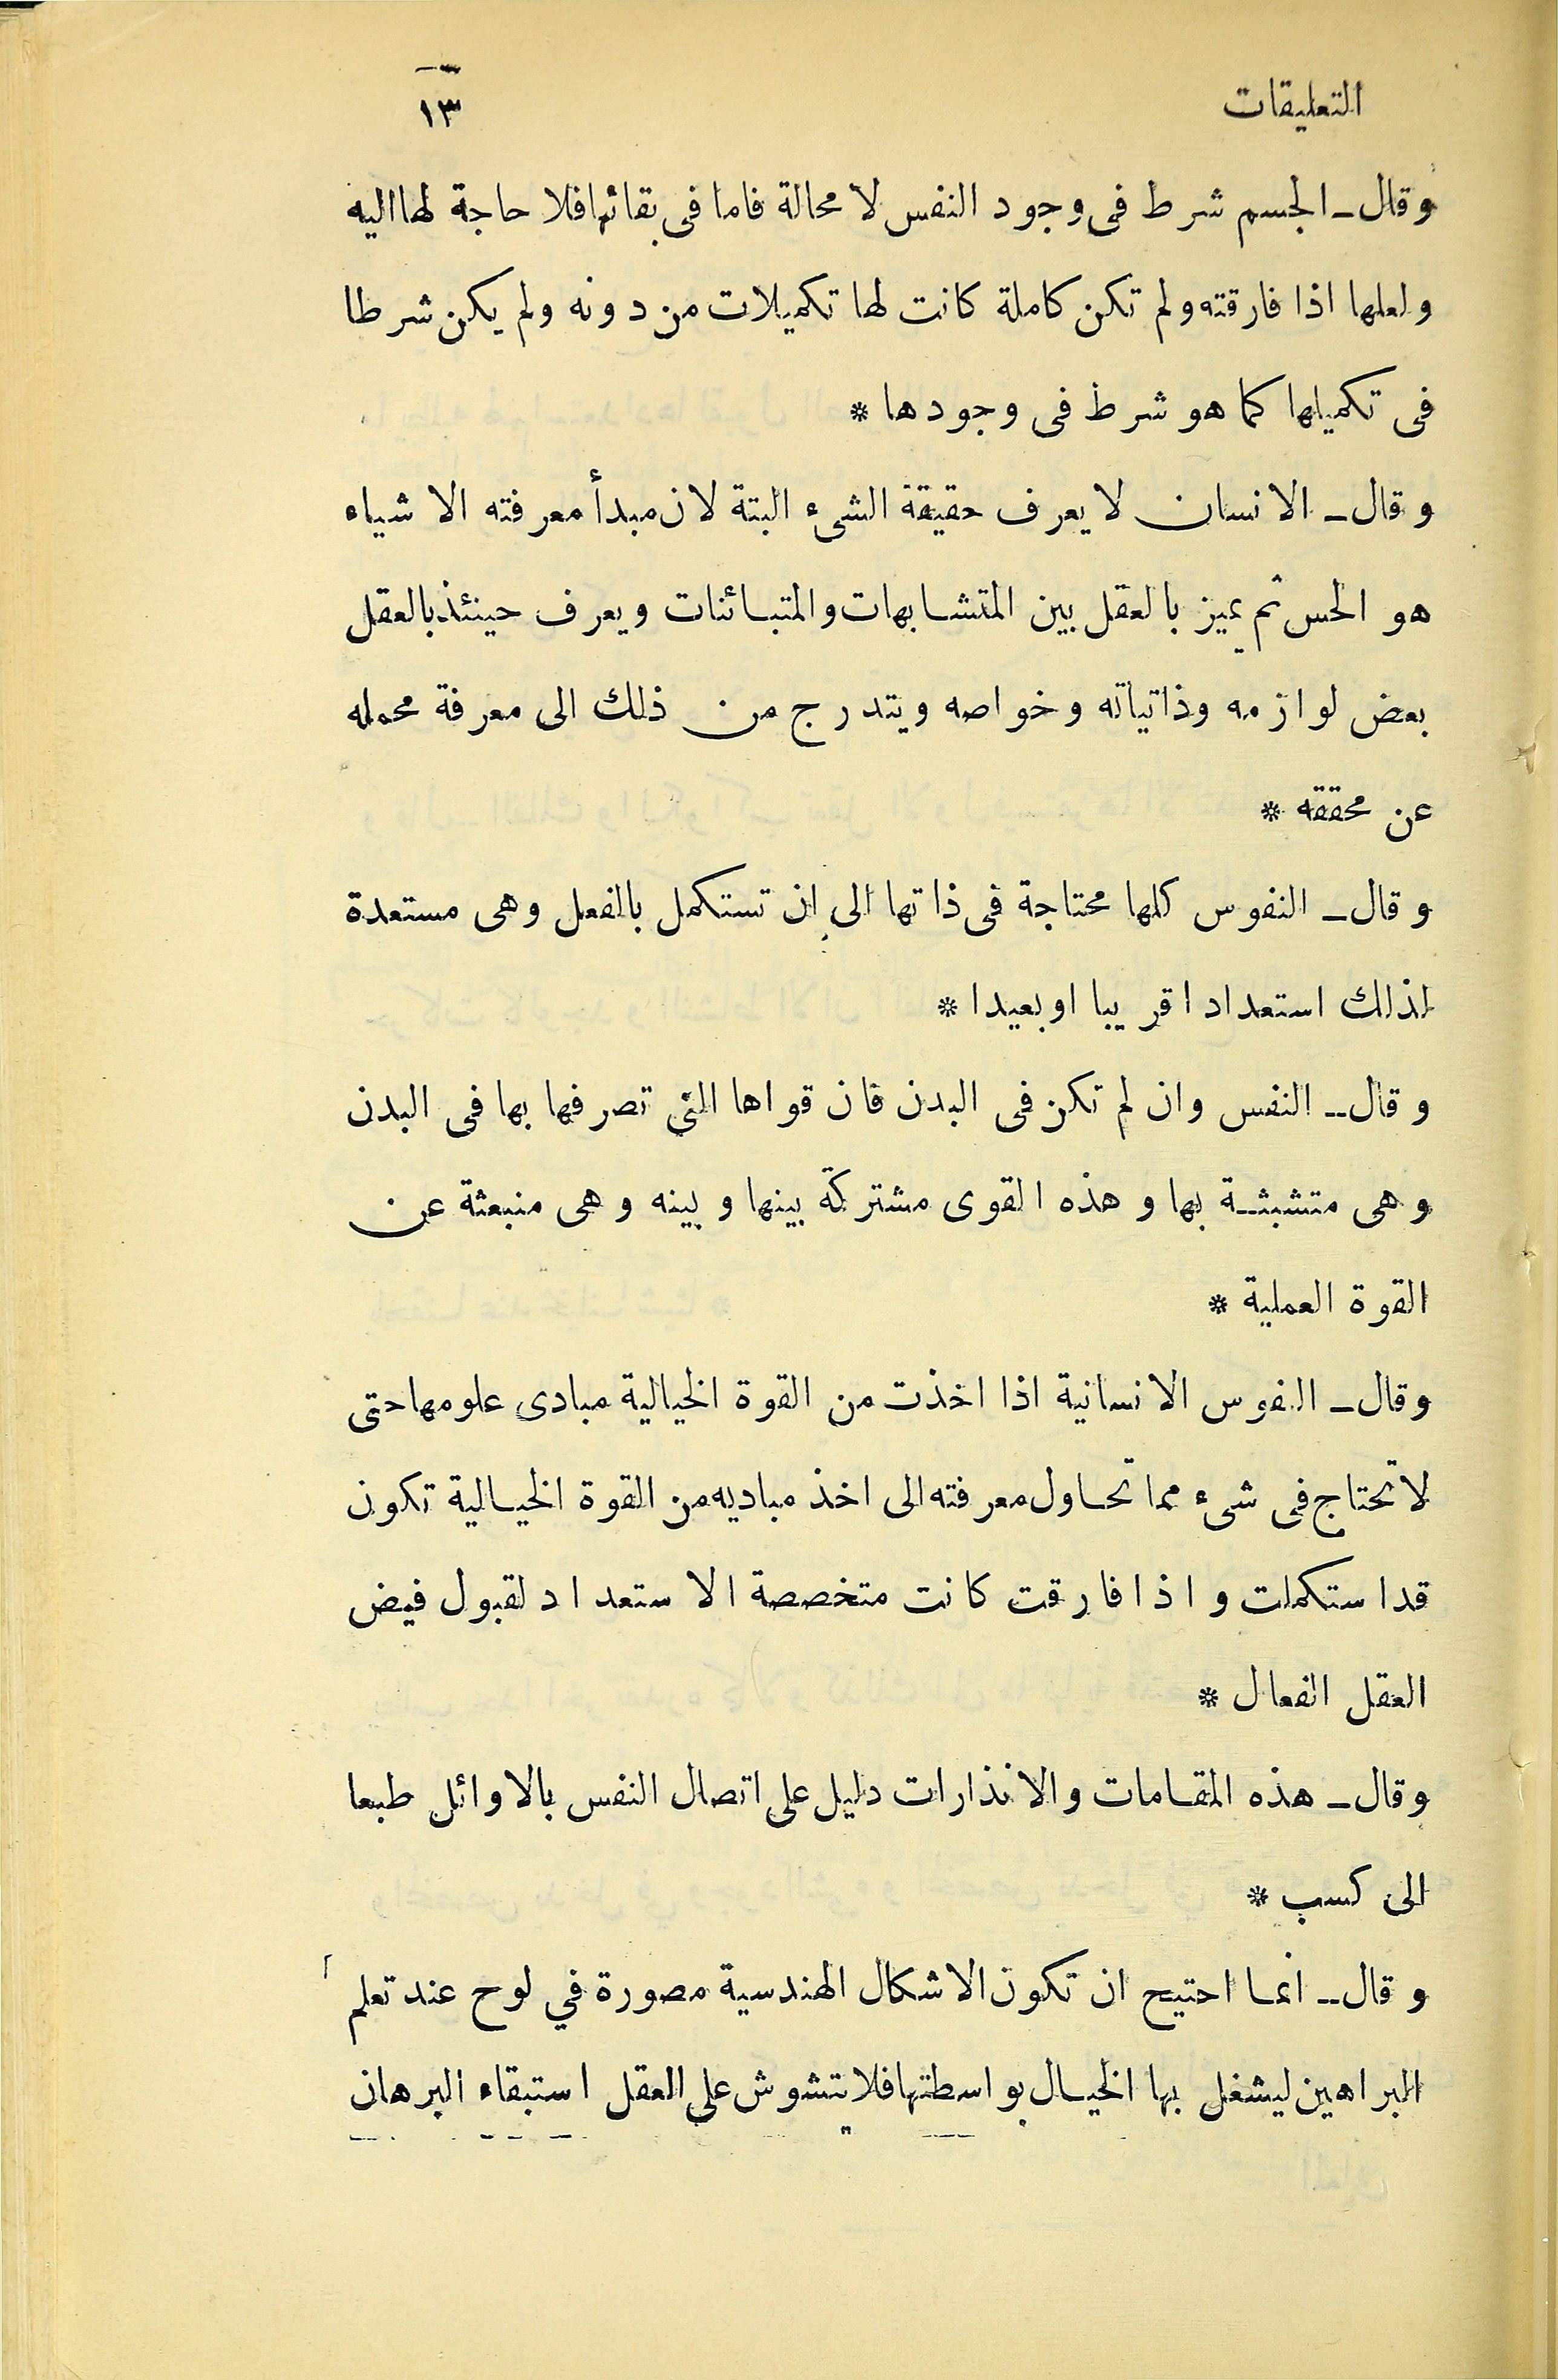 التعليقات ١٣
وقال ـ الجسم شرط فى وجود النفس لا محالة فاما فى بقائها فلا حاجة لها اليه
ولعلها اذا فارقته ولم تكن كاملة كانت لها تكميلات من دونه ولم يكن شرطا
فى تكميلها كما هو شرط فى وجودها *
وقال ـ الانسان لا يعرف حقيقة الشىء البتة لان مبدأ معرفته الاشياء
هو الحس ثم يميز بالعقل بين المتشابهات والمتبائنات ويعرف حينئذ بالعقل
بعض لوازمه وذاتياته وخواصه ويتدرج من ذلك الى معرفة مجمله
عن محققه *
وقال ـ النفوس كلها محتاجة فى ذاتها الى ان تستكمل بالفعل وهى مستعدة
لذلك استعدادا قريبا او بعيدا *
وقال ـ النفس وان لم تكن فى البدن فان قواها التى تصرفها بها فى البدن
وهى متشبثة بها وهذه القوى مشتركة بينها وبينه وهى منبعثة عن
القوة العملية *
وقال ـ النفوس الانسانية اذا اخذت من القوة الخيالية مبادى علومها حتى
لا تحتاج فى شىء مما تحاول معرفته الى اخذ مباديه من القوة الخيالية تكون
قد استكملت واذا فارقت كانت متخصصة الاستعداد لقبول فيض
العقل الفعال *
وقال ـ هذه المقامات والانذارات دليل على اتصال النفس بالاوائل طبعا
الى كسب *
وقال ـ انما احتيج ان تكون الاشكال الهندسية مصورة في لوح عند تعلم
البراهين ليشغل بها الخيال بواسطتها فلا يتشوش على العقل استبقاء البرهان